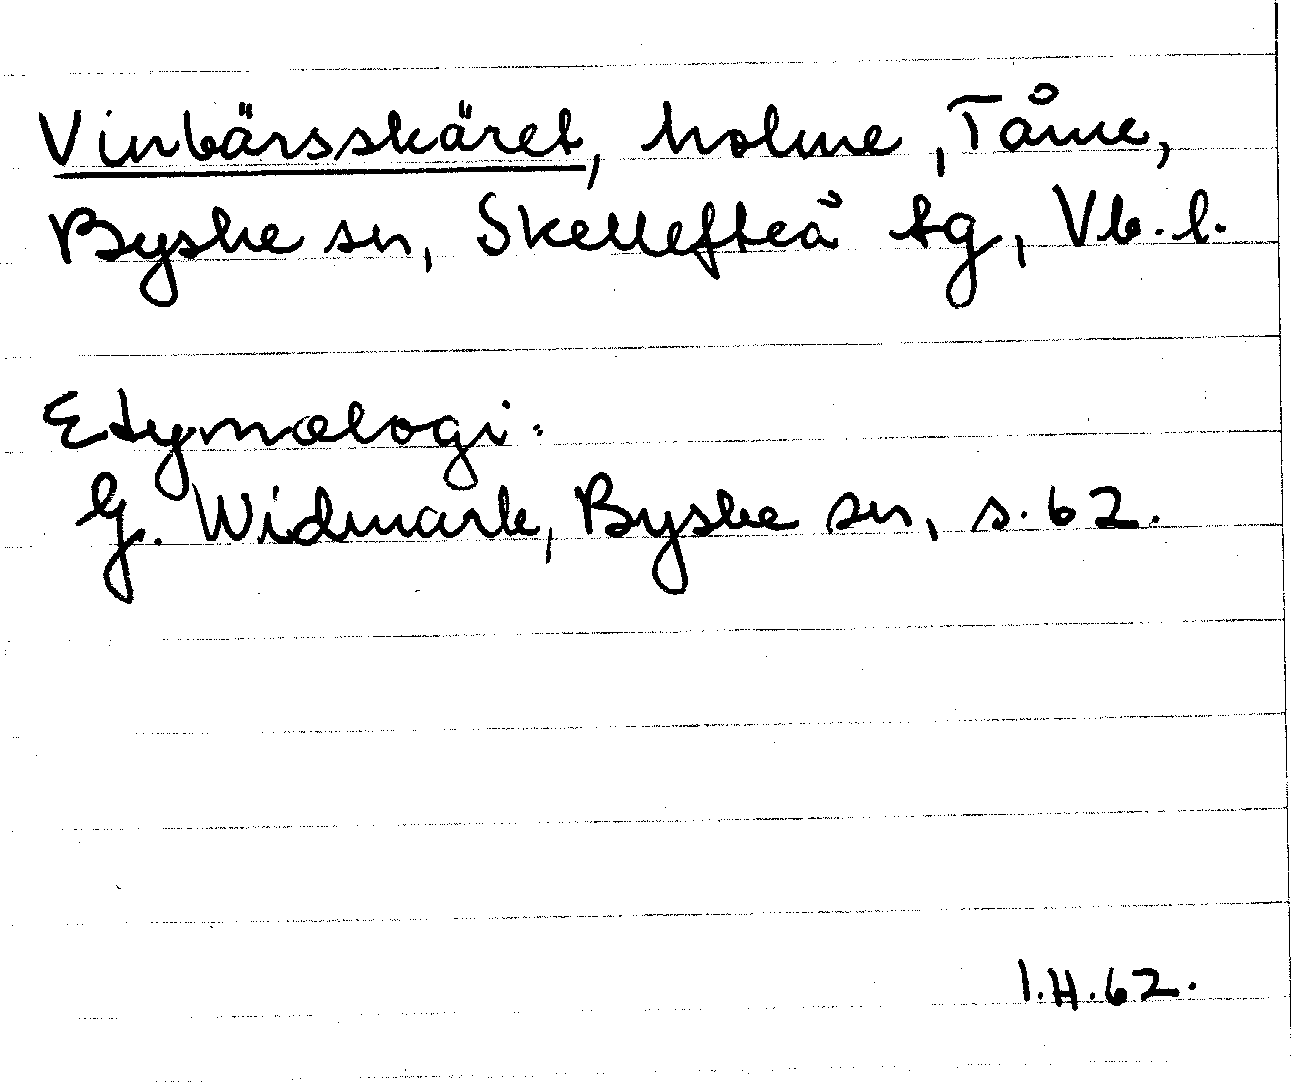 Vinbärsskäret, holme, Tåme,
Byske sn, Skellefteå tg, Vb. l.
Etymologi:
G. Widmark, Byske sn, s. 62.
I.H.62.